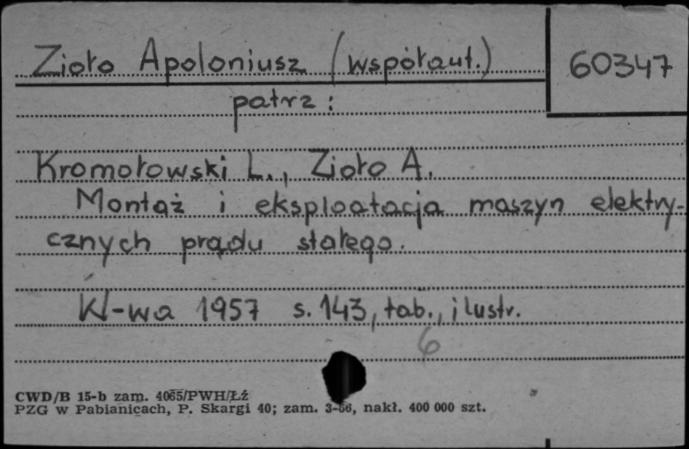 Zioło Apoloniusz (współaut.)
60347
patrz:
Kromołowski L., Zioło A.
Montaż i eksploatacja maszyn elektry-
cznych prądu stałego.
W-wa 1957 s. 143, tab., ilustr.
6
CWD/B 15-b zam. 4065/PWH/Łź
PZG w Pabianicach, P. Skargi 40; zam. 3-66, nakł. 400 000 szt.